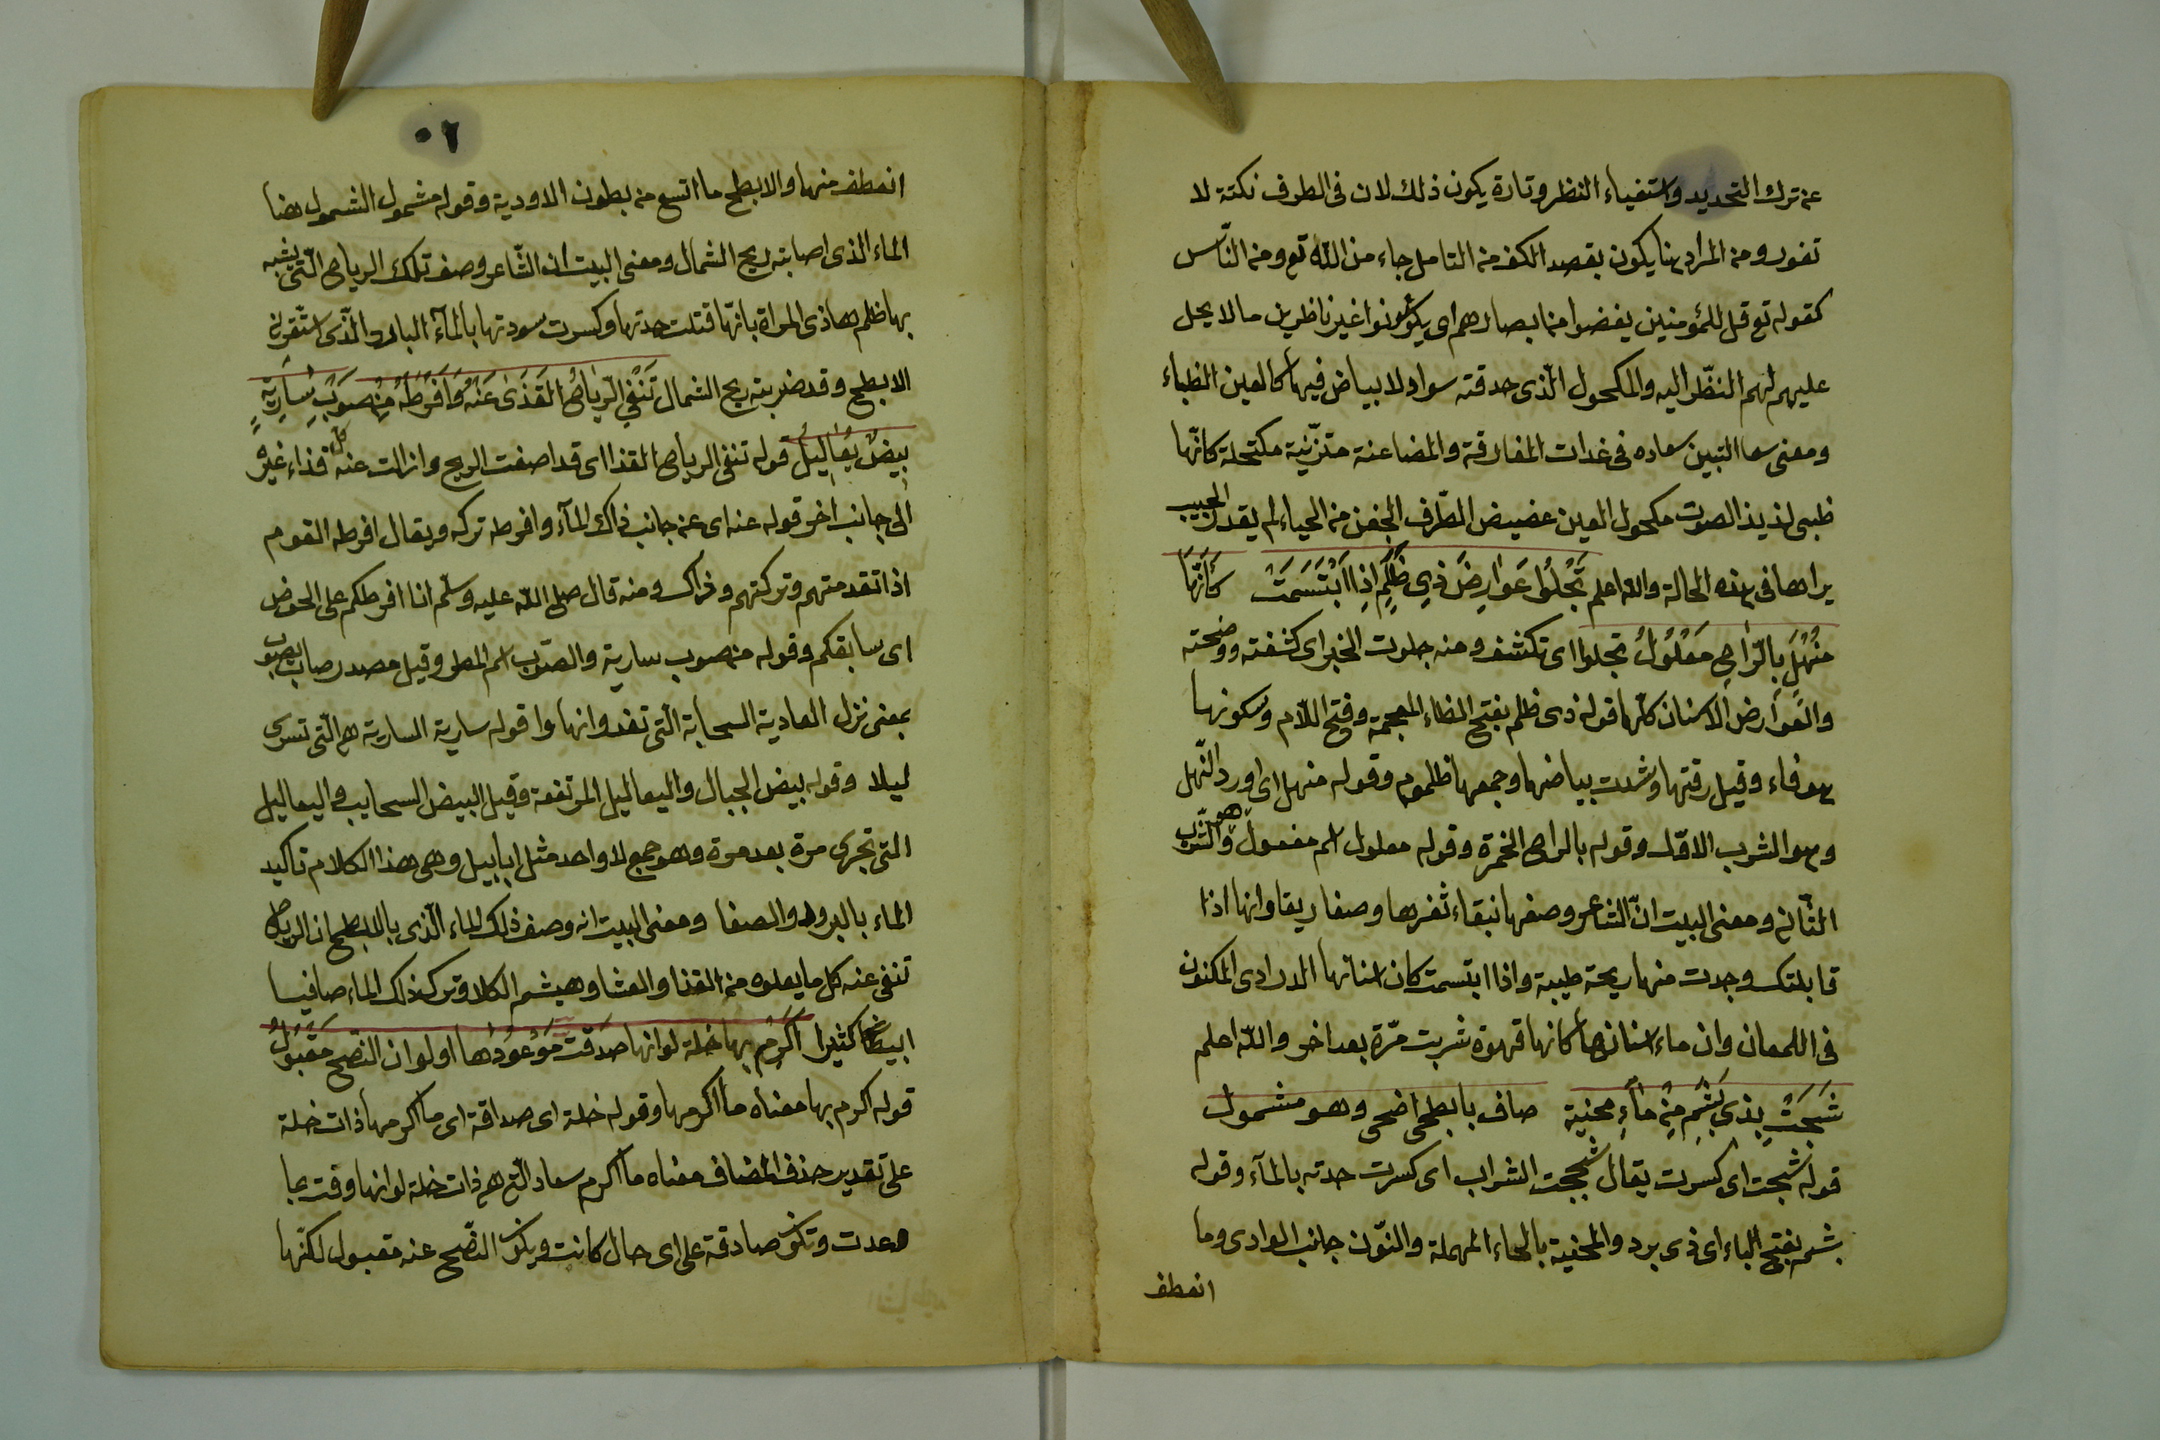 عن ترك التحديد واستفياء النظر وتارة يكون ذلك لان فى الطرف نكتة لا
تفور ومن المراد هنا يكون بقصد الكف من التامل جاء من اللّه تع ومن النّاس
كقوله تع قل للمؤمنين يغضوا من ابصارهم اى يكونوا غير ناظرين ما لا يحل
عليهم لهم النظّر اليه والمكحول الّذى حدقته سواد لا بياض فيها كالعين الظباء
ومعنى سعاده فى غدات المفارقة والمضاعنة متزيّنة مكتحلة كانّها
ظبى لذيذ الصوت مكحول العين غضيض الطّرف الجفن من الحياء لم يقدر الحبيب
يراها فى هذه الحالة واللّه اعلم تَجْلُوا عَوَارِضَ ذِي ظَلْمٍ اِذَا ابْتَسَمَتْ كَاَنَّهَا
مُنْهَلٌ بِالرَّاحِ مَعْلُولُ تجلوا اى تكشف ومنه جلوت الخبر اى كشفته ووضحته
والعوارض الاسنان كلّها قوله ذى ظلم بفتح الظاء المعجمة وفتح اللّام وسكونها
هو فاء وقيل رقتها وشدت بياضها وجمعها ظلموم وقوله منهل اى اورد النّهل
وهو الشرب الاوّل وقوله بالراح الخمرة وقوله معلول اسم مفعول وهو الشّرب
الثّانى ومعنى البيت انّ الشاعر وصفها نبقاء ثغرها وصفا ريقا وانها اذا
قابلتك وجدت منها ريحة طيبة واذا ابتسمت كان اسنانها الدرارى المكنون
فى اللمعان وان ماء اسنانها كانها قهوة شربت مرّة بعد اخر واللّه اعلم
شَجَتْ بِذِي بَشَمٍ مِنْ مَاءِ محنية صاف بابطحى اضحى وهو مشمول
قوله شجت اى كسرت يقال شججت الشراب اى كسرت حدته بالمآء وقوله
بشم بفتح الباء اى ذى برد والمحنية بالحاء المهملة والنّون جانب الوادى وما
انعطف
٥٢
انعطف منها والابطح ما اتسع من بطون الاودية وقوله مشمول الشمول هنا
الماء الذى اصابته ريح الشمال ومعنى البيت ان الشّاعر وصف تلك الرياح الّتى يشبه
بها ظلم هاذى المراة بانّها قتلت حدتها وكسرت سودتها بالمآء البارد الّذى استقر فى
الابطح وقد ضربته ريح الشمال تَنْفِي الرِّيَاحُ الْقَذَىٰ عَنْهُ وَاَفْرَطَهُ مِنْ صَوْبِ سَارِيَةٍ
بِيضٌ يَعَالِيلُ قوله تنفى الرياح القذا اى قد اصفت الريح وازالت عنه كل قذاء غيره
الى جانب اخر قوله عنه اى عن جانب ذاك المآء وافرطه تركه ويقال افرطه القوم
اذا تقدمتهم وتركتهم وراك ومنه قال صلى اللّه عليه وسلّم انا افرطكم على الحوض
اى سابقكم وقوله من صوب سارية والصوّب اسم المطر وقيل مصدر صاب يصوب
بمعنى نزل الغادية السحابة الّتى تغدوا نهارا قوله سارية السارية هى الّتى تسرى
ليلا وقوله بيض الجبال واليعاليل المرتفعة وقيل البيض السحايب واليعاليل
التى تجرى مرة بعد مرة وهو جمع لا واحد مثل ابابيل وهى هذا الكلام تاكيد
الماء بالبرود والصفا ومعنى البيت انه وصف ذلك الماء الّذى بالابطح ان الرياح
تنفى عنه كل ما يعلوه من القذا والعشا وهيشم الكلا وترك ذلك الماء صافيا
ابيضا كثيرا اَكْرِمْ بها خلة لو انها صدقت مَوْعُودُها او لو ان النصح مَقْبُولُ
قوله اكرم بها معناه ما اكرمها وقوله خلة اى صداقة اى ما اكرمها ذات خلة
على تقدير حذف المضاف معناه ما اكرم سعاد الّتى هى ذات خلة لو انها وفت بما
وعدت وتكون صادقة على اى حال كانت ويكون النّصح عنه مقبول لكنّها